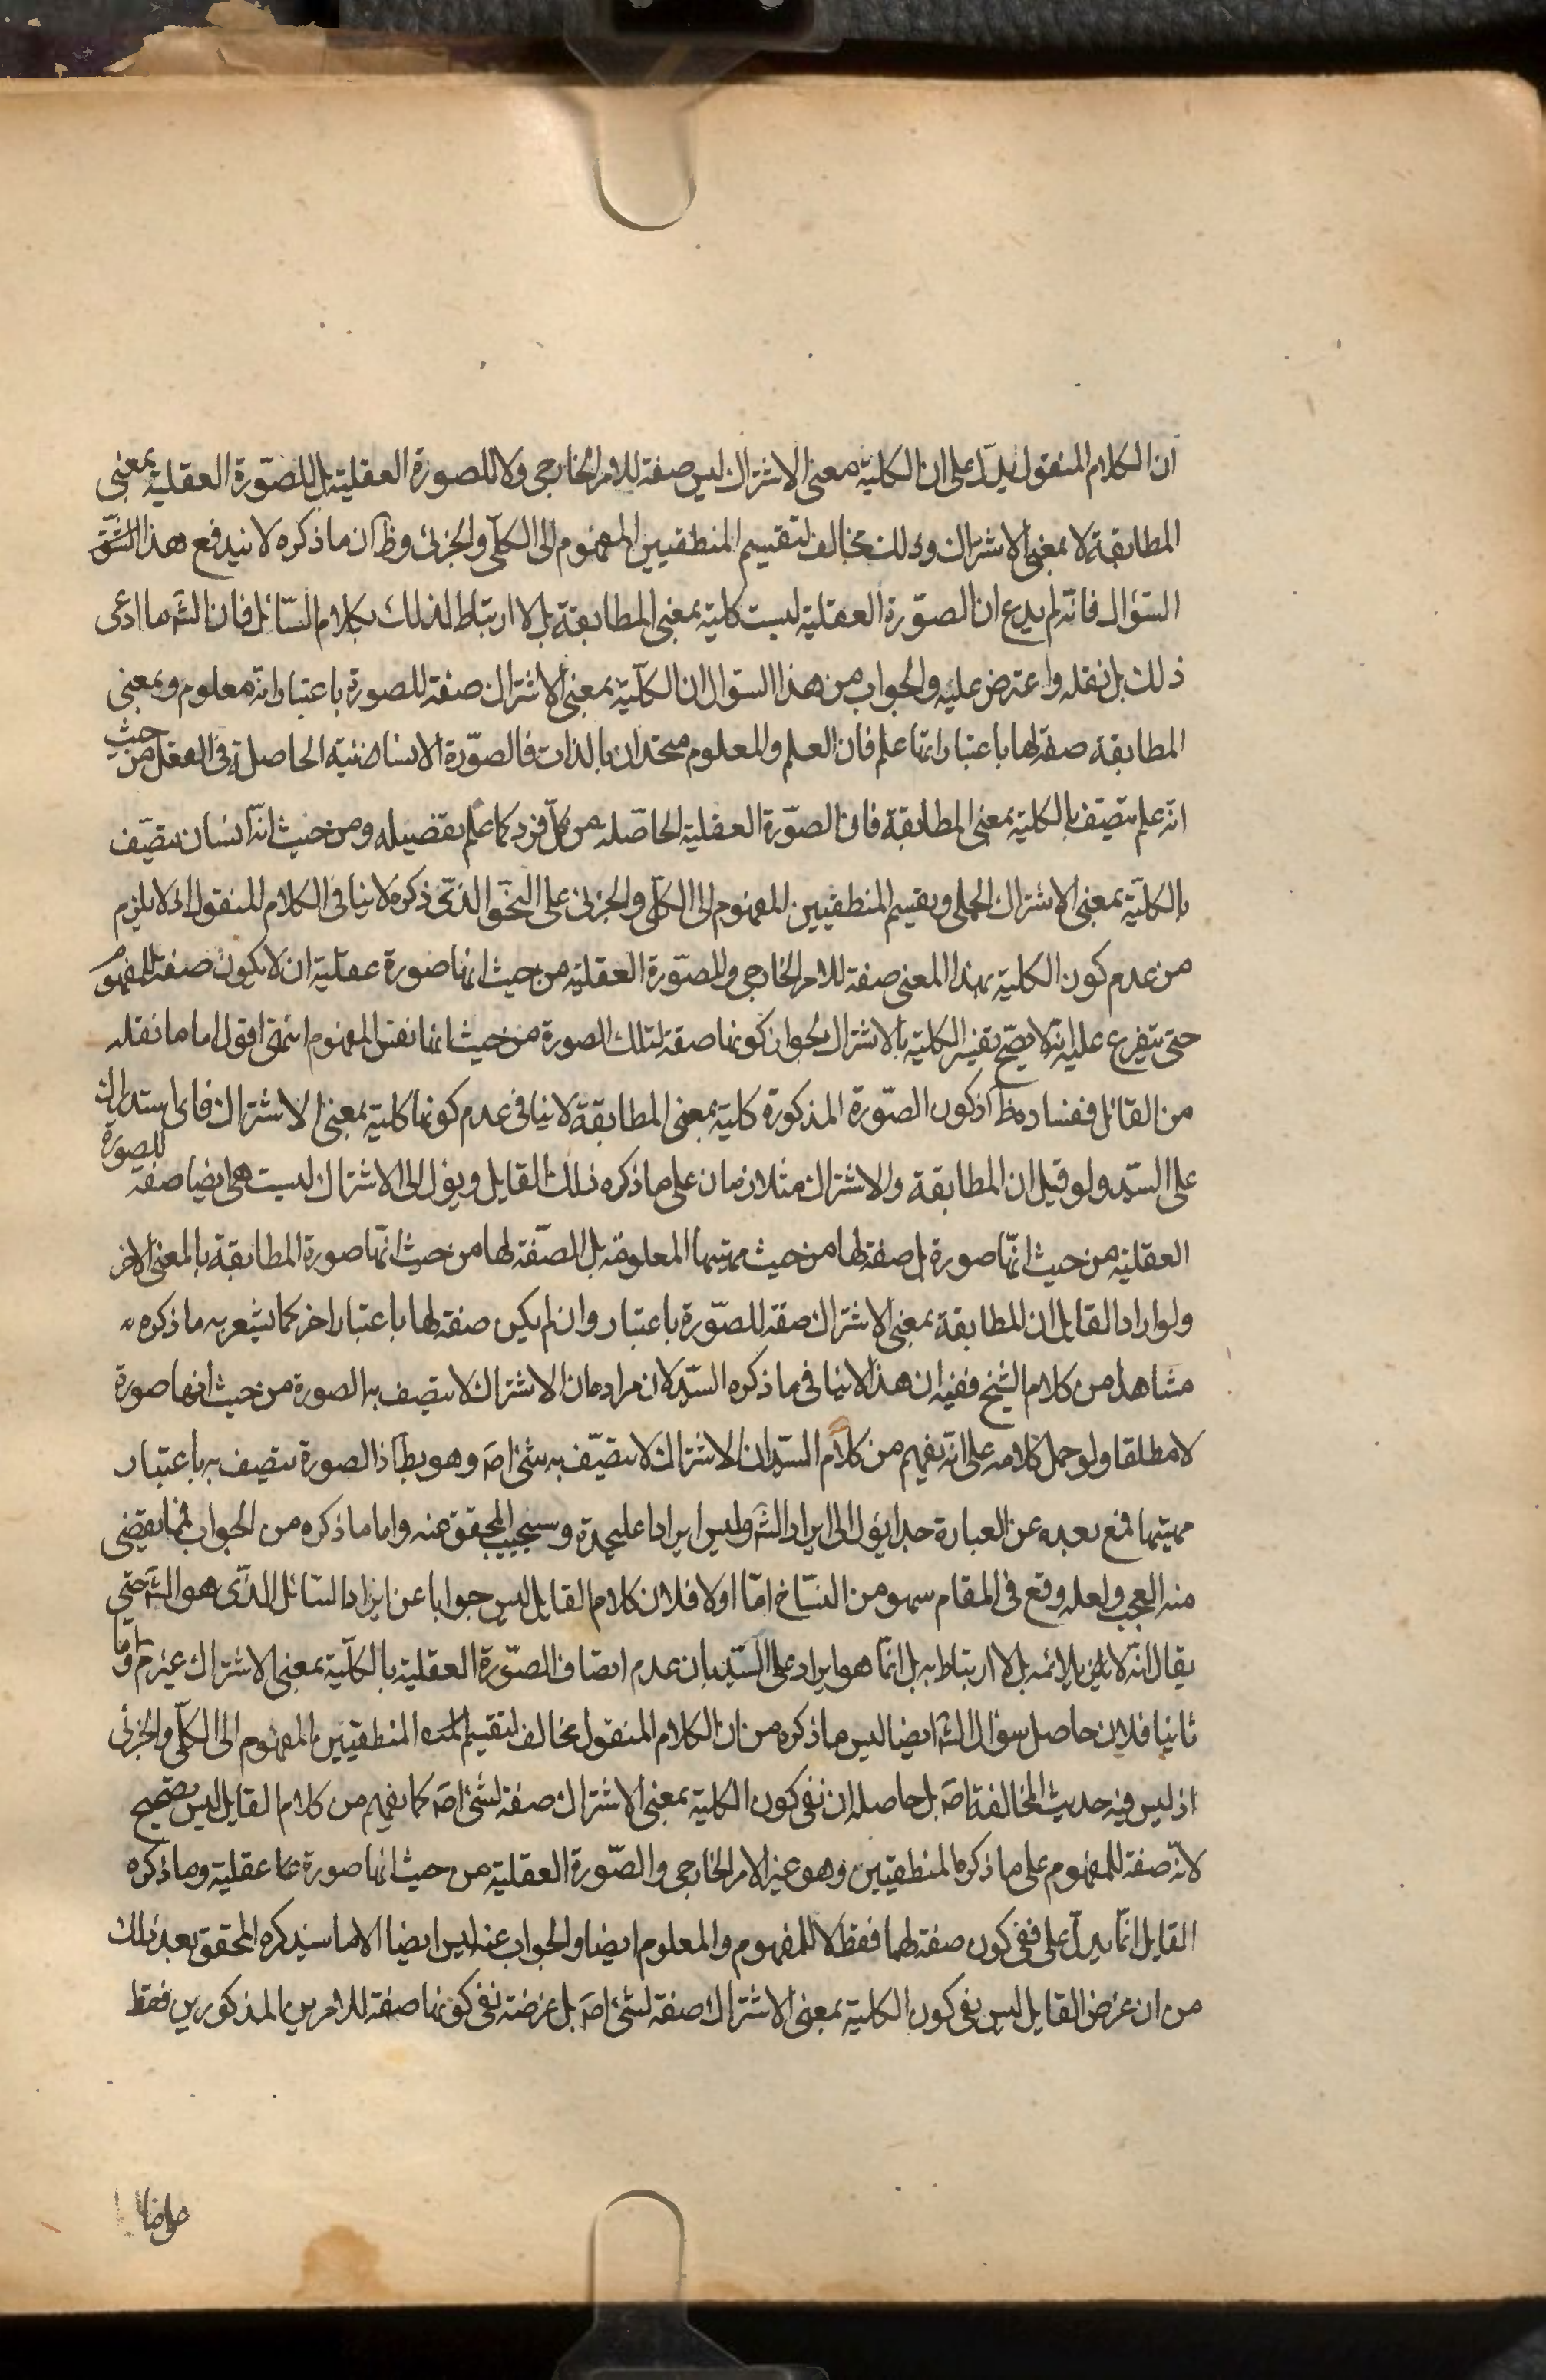 ان الكلام المنقول يدلّ على ان الكلية بمعنى الاشتراك ليس صفة للامر الخارجى ولا للصورة العقلية بل للصّورة العقلية بمعنى
المطابقة لا بمعنى الاشتراك وذلك مخالف لتقسيم المنطقيين المفهوم الى الكلّى والجزئى وظ ان ما ذكره لا يندفع هذا الشقّ
السّؤال فانّه لم يدع ان الصّورة العقلية ليست كلية بمعنى المطابقة بل لا ارتباط لذلك بكلام السّائل فان الشّه ما ادعى
ذلك بل نقله واعترض عليه والجواب من هذا السؤال ان الكلّية بمعنى الاشتراك صفة للصورة باعتبار انه معلوم وبمعنى
المطابقة صفة لها باعتبار انها علم فان العلم والمعلوم متحدان بالذات فالصّورة الانسانية الحاصلة فى العقل من حيث
انّه علم يتصّف بالكلية بمعنى المطابقة فان الصّورة العقلية الحاصلة من كلّ فرد كما علم تفصيله ومن حيث انّه انسان يتصّف
بالكلّية بمعنى الاشتراك الحملى وتقسيم المنطقيين المفهوم الى الكلّى والجزئى على النحو الذى ذكره لا ينافى الكلام المنقول اذ لا يلزم
من عدم كون الكلية بهذا المعنى صفة للامر الخارجى والصّورة العقلية من حيث انها صورة عقلية ان لا يكون صفة للمفهوم
حتى يتفرع عليه انه لا يصّح تفسير الكلية بالاشتراك لجواز كونها صفة لتلك الصورة من حيث انها نفس المفهوم انتهى اقول اما ما نقله
من القائل ففساده ظ اذ كون الصّورة المذكورة كلية بمعنى المطابقة لا ينافى عدم كونها كلية بمعنى الاشتراك فاى استدراك
على السّيد ولو قيل ان المطابقة والاشتراك متلازمان على ما ذكره ذلك القايل ويؤل الى الاشتراك ليست هى ايضا صفة للصورة
العقلية من حيث انّها صورة بل صفة لها من حيث مهيتها المعلومة بل الصّفة لها من حيث انّها صورة المطابقة بالمعنى الاخر
ولو اراد القايل ان المطابقة بمعنى الاشتراك صفة للصّورة باعتبار وان لم يكن صفة لها باعتبار اخر كما يشعر به ما ذكره
مشاهدا من كلام الشيخ ففيه ان هذا لا ينافى ما ذكره السّيد لان مراده ان الاشتراك لا يتصف به الصورة من حيث انها صورة
لا مطلقا ولو حمل كلامه على انه يفهم من كلام السّيد ان الاشتراك لا يتصّف به شئ اصَ وهو بط اذ الصورة يتصف به باعتبار
مهيتها فمع بعده عن العبارة جدا يؤل الى ايراد الشَه وليس ايرادا عليحدة وسيجيب المحقق عنه واما ما ذكره من الجواب فمما يقضى
منه العجب ولعله وقع فى المقام سهو من النسّاخ امّا اولا فلان كلام القايل ليس جوابا عن ايراد السّائل الذّى هو الشَه حتى
يقال انّه لا يلائمه بل لا ارتباط به بل انّما هو ايراد على السّيد بان عدم اتصاف الصّورة العقلية بالكلّية بمعنى الاشتراك غير م وامّا
ثانيا فلان حاصل سؤال الشَه ايضا ليس ما ذكره من ان الكلام المنقول مخالف لتقسيم المنطقيين المفهوم الى الكلّى والجزئى
اذ ليس فيه حديث المخالفة اصَ بل حاصله ان نفى كون الكلية بمعنى الاشتراك صفة لشئ اصَ كما يفهم من كلام القايل ليس بصحيح
لانّه صفة للمفهوم على ما ذكره المنطقيين وهو غير الامر الخارجى والصّورة العقلية من حيث انها صورة عقلية وما ذكره
القايل انّما يدلّ على نفى كون صفة لهما فقط لا للمفهوم والمعلوم ايضا والجواب عنه ليس ايضا الا ما سيذكره المحقق بعد ذلك
من ان غرض القايل ليس نفى كون الكلية بمعنى الاشتراك صفة لشئ اصَ بل غرضه نفى كونها صفة للامرين المذكورين فقط